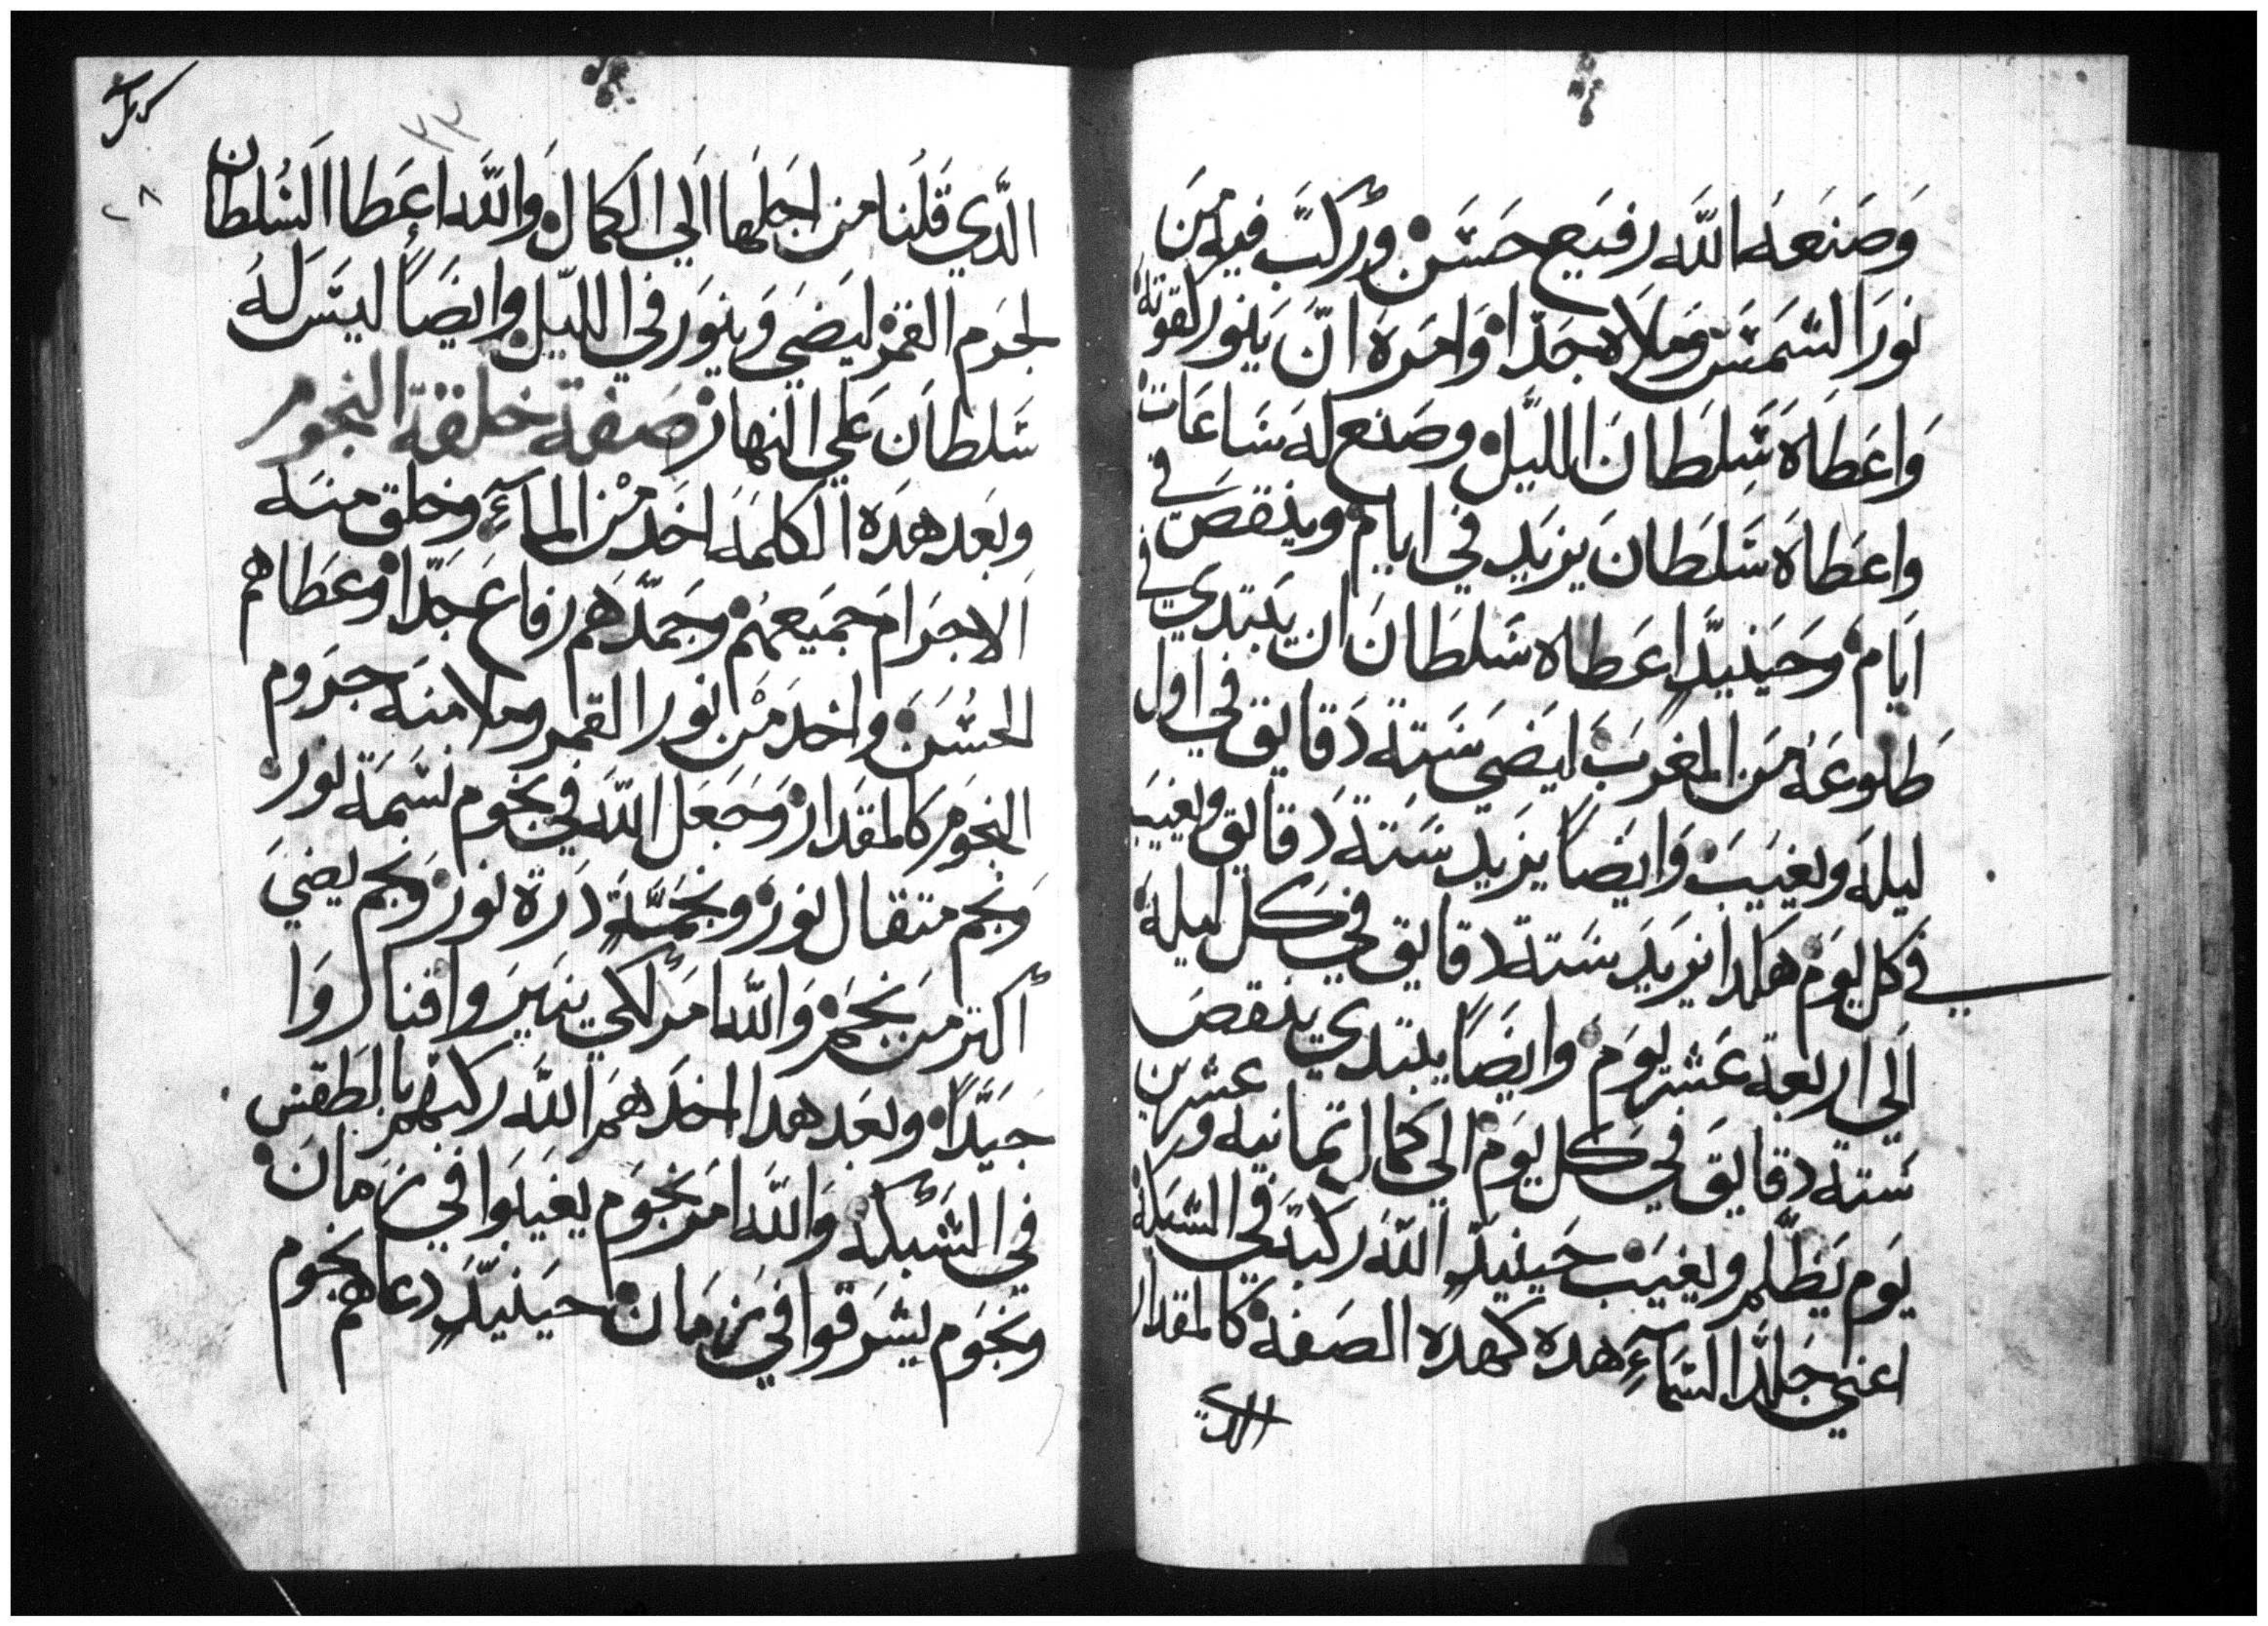 وَصَنعَهُ اللَّه رفيع حسَن وركَّب فيه من
نورَ الشمسَ وملاه جدّا وَامَره انَّ ينور لقوته
وَاعَطاهَ سَلِطَانَ الليَّل وصَنع له سَاعَات
وَاعطَاهَ سَلطَانَ يزيَد في ايام وينقصَ في
ايَام وحَينيدٍ اعَطاه سَلطَانَ ان يَبتدي في
طَلوعَهُ مَن المغربَ ايضَي سَتة دَقايق في اول
ليلهَ ويغيبَ وَايضَاً يزيَد سَتة دَقايق ويغيبَ
في كل يوَم هَكدا يزيَدَ سَتة دقايق في كل ليلهَ
الَي اربعة عَشر يوَم وايضَاً يبتدي ينقصَ
سَتة دقايقَ في كل يوَم الي كمال تمانيه وعشرين
يوَم يَظَّلم ويغيبَ حَينيدٍ اللَّه ركبَّة في الشبكة
اعني جَلدَّ السَّمآءِ هده كهده الصَفة كالمقدار
الدي
كراس
٢٣
٢٨
الدَّي قَلنَا من اجَلهَا الَي الكمال وَاللَّه اعَطا السُلطَان
لجرَم القمَر ليضَي وَينوَر في الليّل وايضَاً ليسَ له
سَلطَانَ عَلي النهار صَفة خلقة النجوم
وبعَد هدَه الكلمَة اخَد مْن المآءِ وخلق منهَ
الاجرَامَ جَميَعهُم وجَمدَّهَم رفاعَ جَدّا وعَطاهم
الحسُنَ واخدَ مْن نورا القمر وملا منهَ جرَوم
النجوَم كالمقدَار وَجَعَل اللَّه في نجَوم نسَمَة نورَ
وَنجم متقال نورَ ونجمَةٍ دَرة نورَ وَنجم يضيَ
اَكتر من نجَم وَاللَّه امَر لكي ينيرَ واقناروَا
جَيَّداً وبعَد هدا اخدَهمَ اللَّه ركبهم بالطَقس
في الشَبكهَ وَاللَّه امَر نجَوَم يغيبَوا في زمَان
ونجوَم يشرَقوا في زمَان حيَنيدٍ دعَاهم نجوم